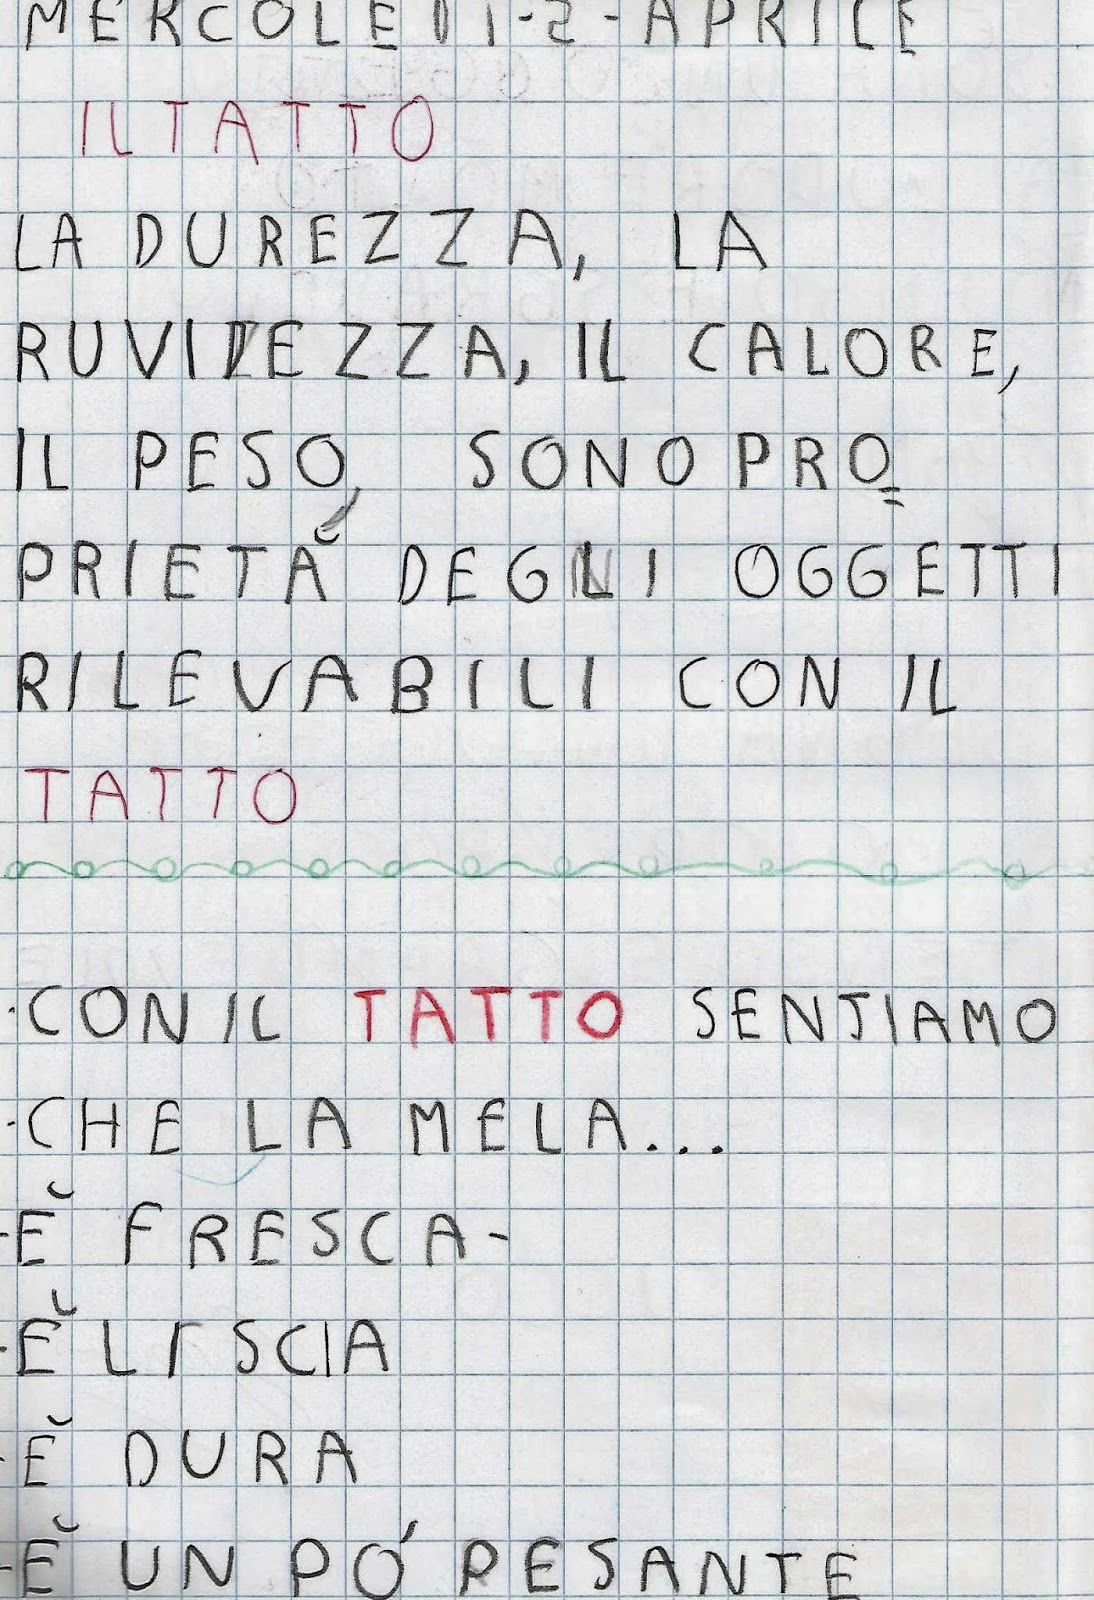 MERCOLEDI-2-APRILE
IL TATTO
LA DUREZZA, LA
RUVIDEZZA, IL CALORE,
IL PESO, SONO PRO=
PRIETÀ DEGLI OGGETTI
RILEVABILI CON IL
TATTO
·CON IL TATTO SENTIAMO
·CHE LA MELA...
-È FRESCA-
·È LISCIA
-È DURA
-È UN PÓ PESANTE